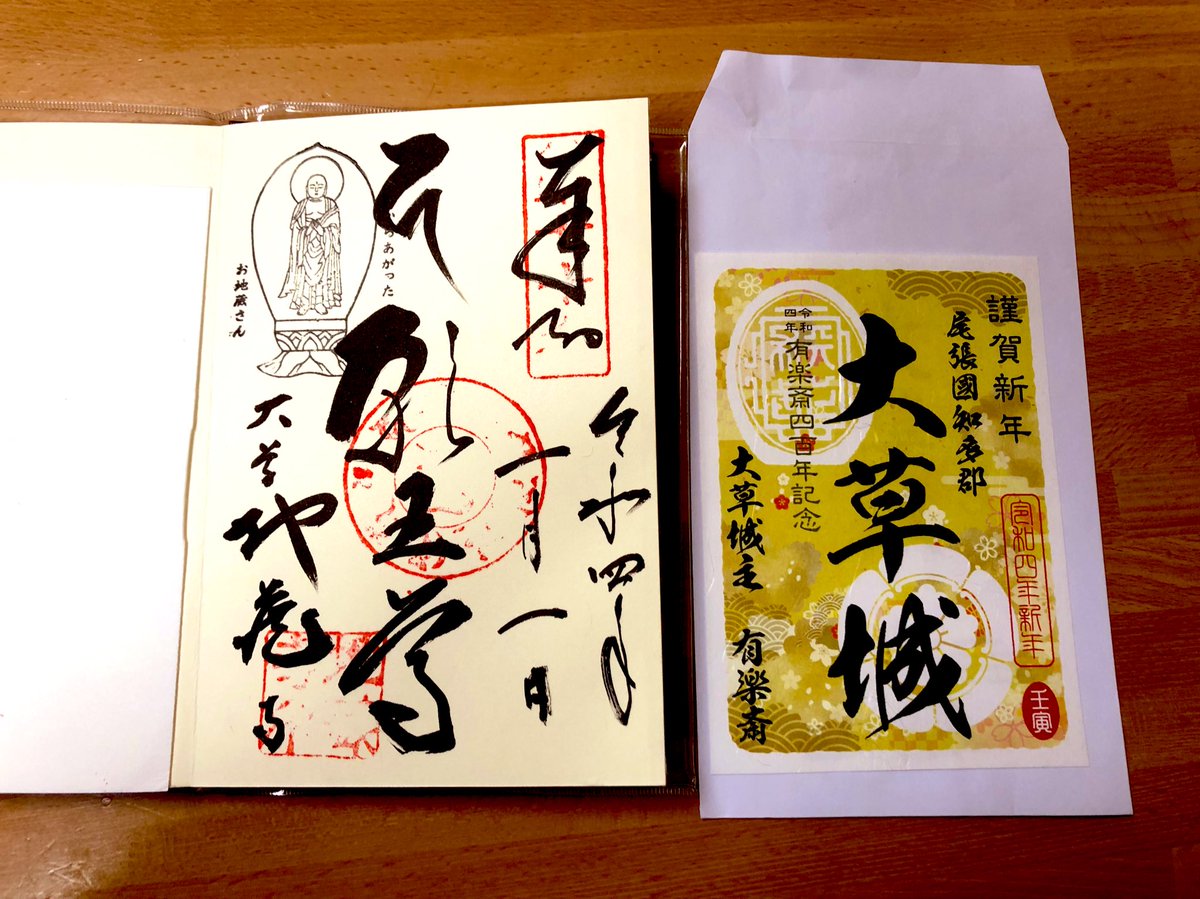 奉拝
令和四年
一月一日
願王尊
らあがった
お地蔵さん
大草
地蔵寺
謹賀新年
尾張國知多郡
大草城
令和四年
有楽斎四百年記念
大草城主 有楽斎
令和四年新年
壬寅